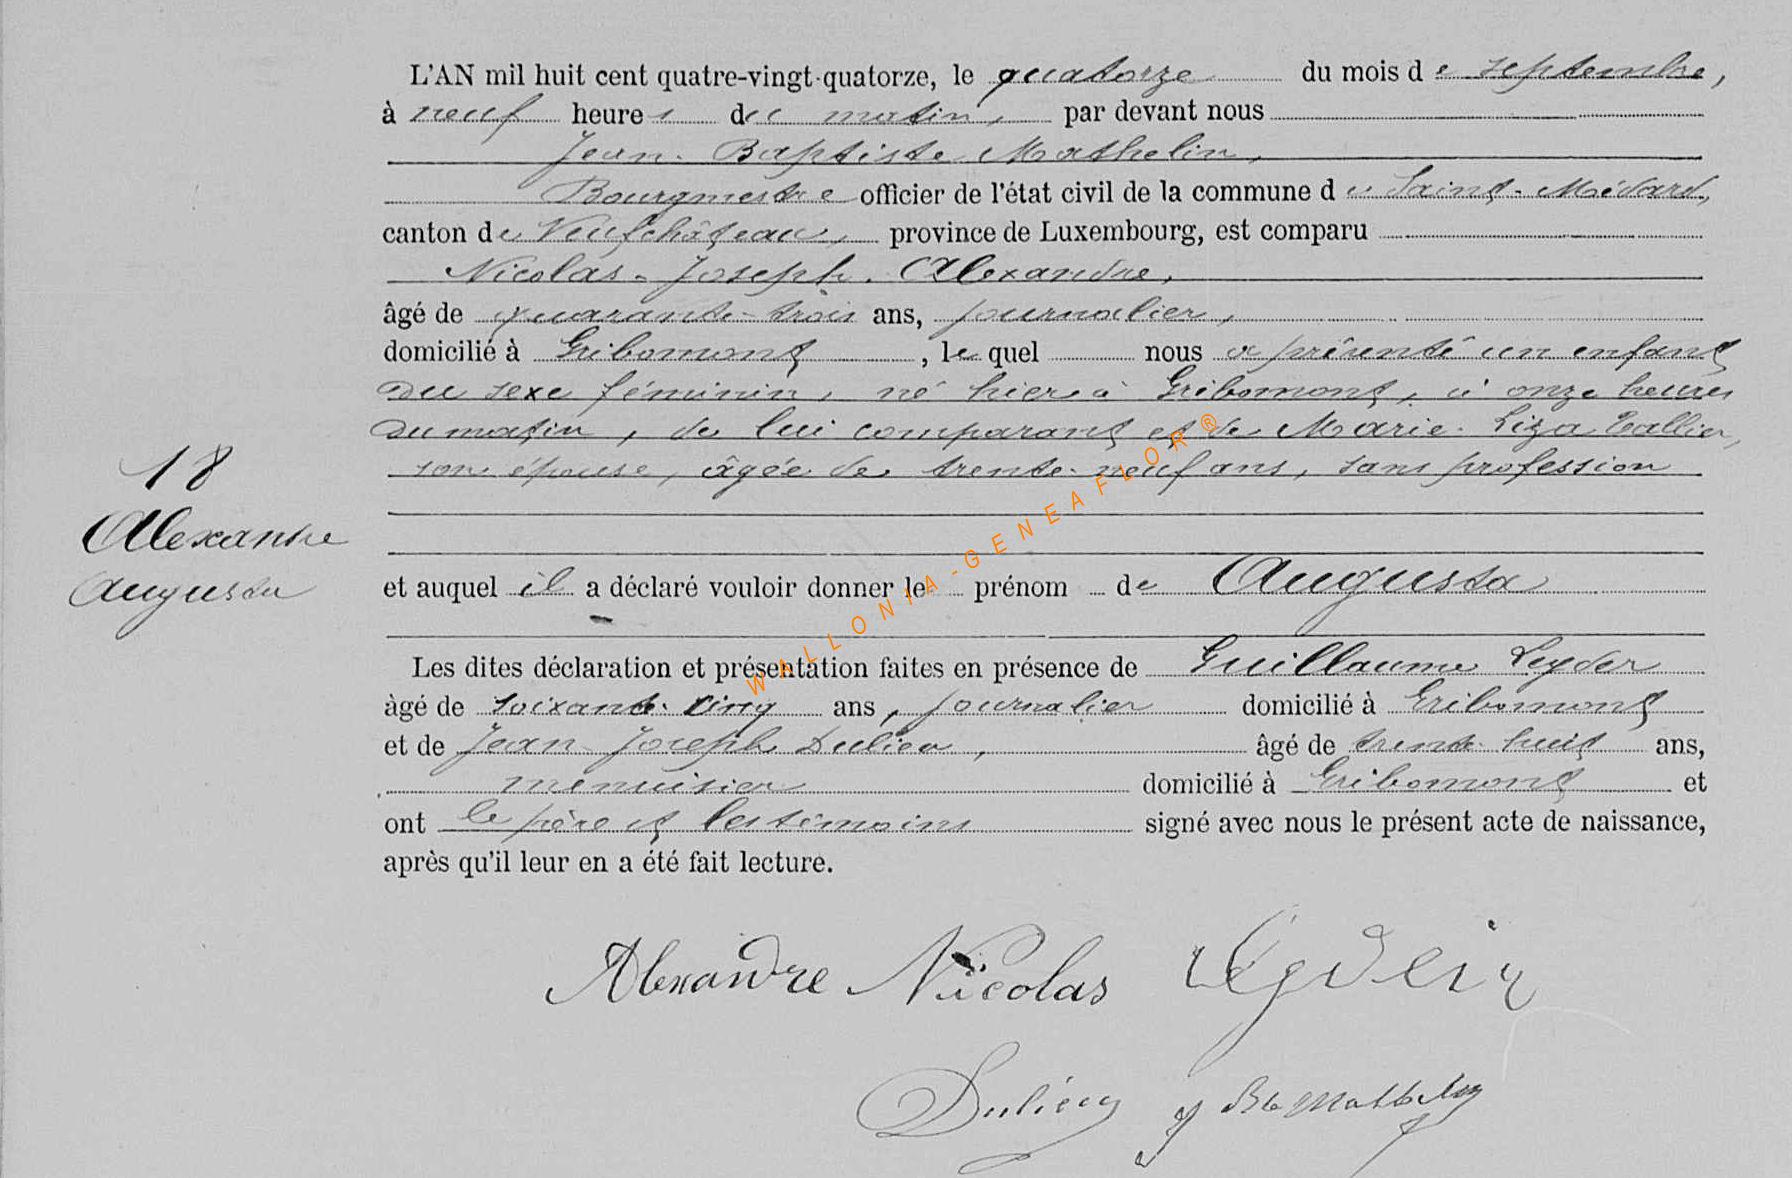 L'AN mil huit cent quatre-vingt-quatorze, le quatorze du mois de septembre,
à neuf heures du matin, par devant nous
Jean-Baptiste Mathelin,
Bourgmestre officier de l'état civil de la commune de Saint-Médard,
canton de Neufchâteau, province de Luxembourg, est comparu
Nicolas-Joseph Alexandre,
âgé de quarante-trois ans, journalier,
domicilié à Gribomont, lequel nous a présenté un enfant
du sexe féminin, né hier à Gribomont, à onze heures
du matin, de lui comparant et de Marie-Liza Tallier,
son épouse, âgée de trente-neuf ans, sans profession
18
Alexandre
Augusta
et auquel il a déclaré vouloir donner le prénom de Augusta
Les dites déclaration et présentation faites en présence de Guillaume Legder
âgé de soixante-cinq ans, journalier domicilié à Gribomont
et de Jean-Joseph Dulieu, âgé de trente-huit ans,
menuisier domicilié à Gribomont et
ont le père et les témoins signé avec nous le présent acte de naissance,
après qu'il leur en a été fait lecture.
Alexandre Nicolas
Dulieu J Bte Mathelin
WALLONIA-GENEAFLOR®